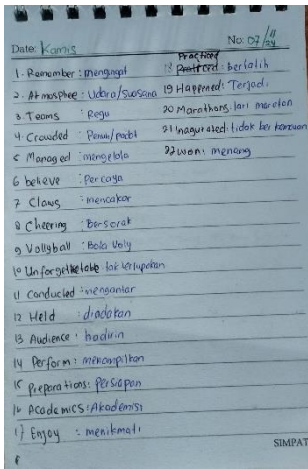 Date: Kamis No: 07/11/24
1. Remember : mengingat
2. Atmosphee : Udara/suasana
3. Teams : Regu
4 Crowded : Penuh/padat
5 Managed : mengelola
6 believe : Percaya
7 Claws : mencakar
8 Cheering : Bersorak
9 Vollyball : Bola Voly
10 Unforgettable tak terlupakan
11 Conducted : mengantar
12 Held : diadakan
13 Audience : hadirin
14 Perform : menampilkan
15 Preparations : Persiapan
16 Academics : Akademisi
17 Enjoy : menikmati
18 Practiced : berlatih
19 Happened : Terjadi
20 Marathons : lari maraton
21 Inagurated : tidak
22 won : menang
SIMPAT